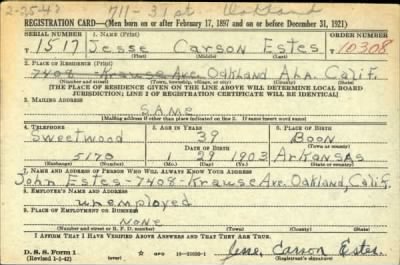 2-25-48 711-31st Oakland
REGISTRATION CARD—(Men born on or after February 17, 1897 and on or before December 31, 1921)
SERIAL NUMBER 1. NAME (Print) ORDER NUMBER
T 1517 Jesse Carson Estes T 10308
(First) (Middle) (Last)
2. PLACE OF RESIDENCE (Print)
7408 - Krause Ave. Oakland Ala. Calif.
(Number and street) (Town, township, village, or city) (County) (State)
[THE PLACE OF RESIDENCE GIVEN ON THE LINE ABOVE WILL DETERMINE LOCAL BOARD
JURISDICTION; LINE 2 OF REGISTRATION CERTIFICATE WILL BE IDENTICAL]
3. MAILING ADDRESS
SAME
[Mailing address if other than place indicated on line 2. If same insert word same]
4. TELEPHONE 5. AGE IN YEARS 6. PLACE OF BIRTH
Sweetwood 39 Boon
DATE OF BIRTH (Town or county)
5170 1 29 1903 Arkansas
(Exchange) (Number) (Mo.) (Day) (Yr.) (State or country)
7. NAME AND ADDRESS OF PERSON WHO WILL ALWAYS KNOW YOUR ADDRESS
John Estes - 7408 - Krause Ave. Oakland, Calif.
8. EMPLOYER'S NAME AND ADDRESS
unemployed
9. PLACE OF EMPLOYMENT OR BUSINESS
NONE
(Number and street or R. F. D. number) (Town) (County) (State)
I AFFIRM THAT I HAVE VERIFIED ABOVE ANSWERS AND THAT THEY ARE TRUE.
D. S. S. Form 1
(Revised 1-1-42) GPO Jesse Carson Estes
(Registrant's signature)